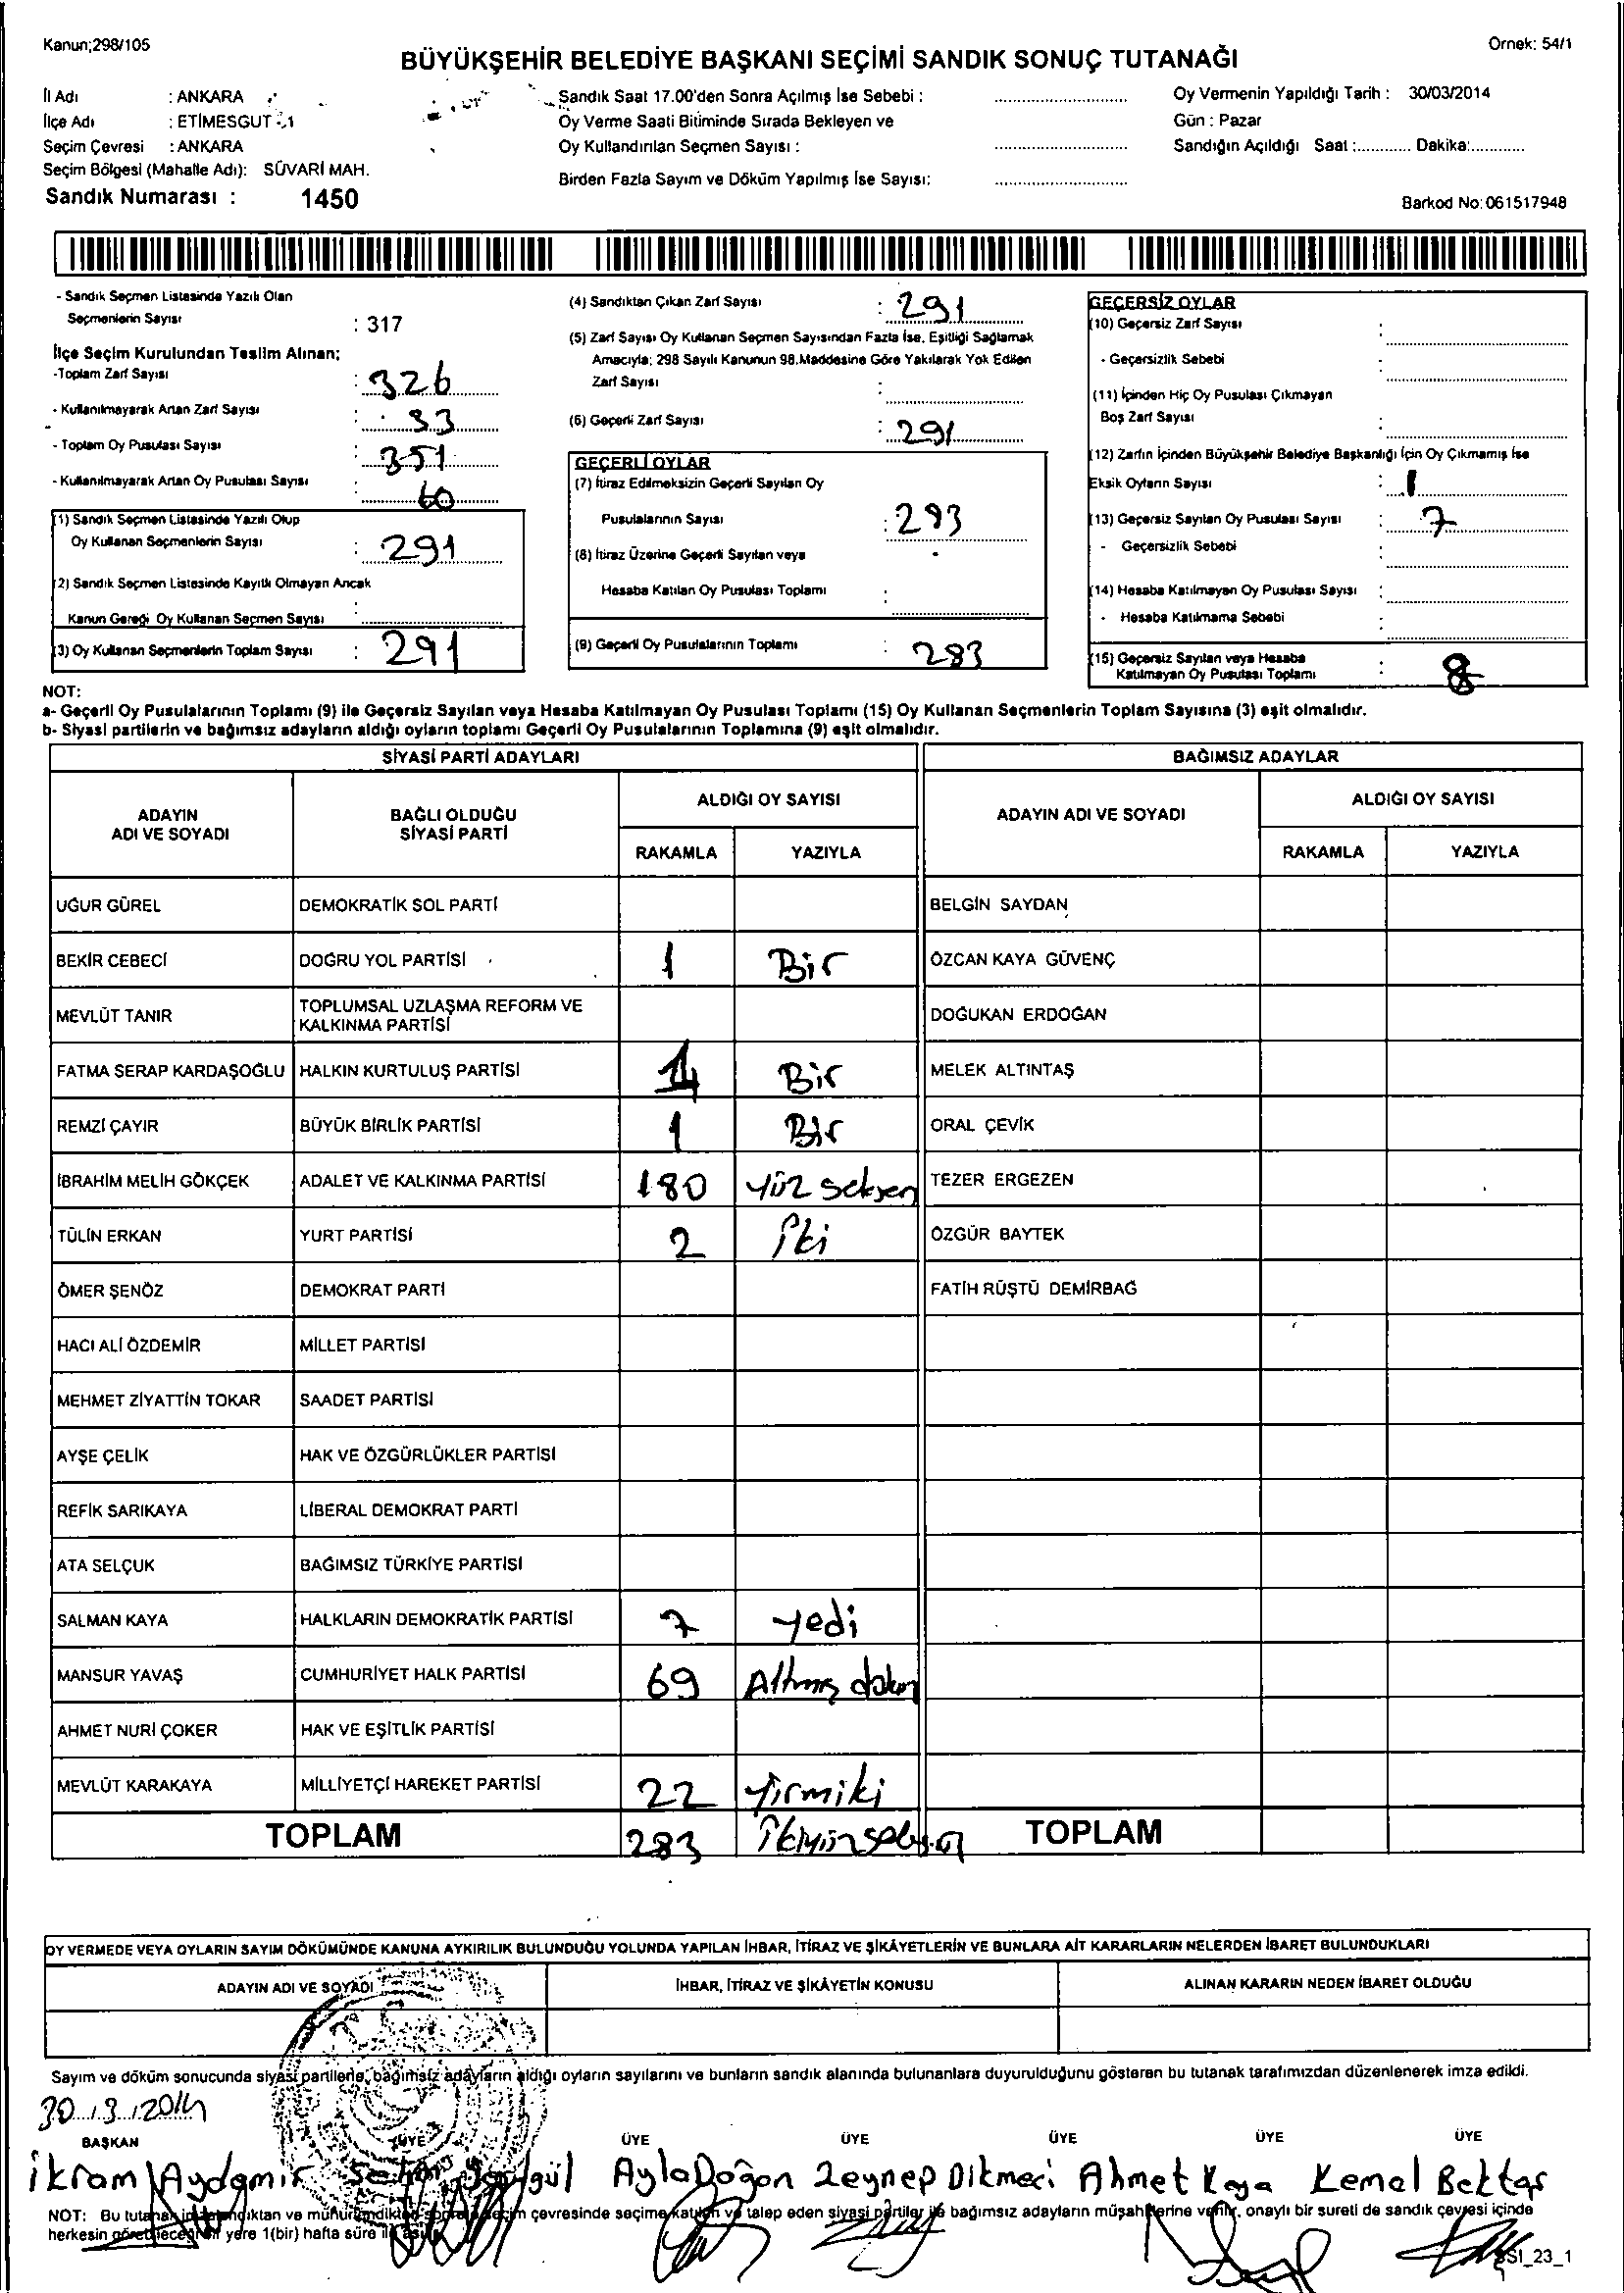 Kanun;298/105
Örnek: 54/1
BÜYÜKŞEHİR BELEDİYE BAŞKANI SEÇİMİ SANDIK SONUÇ TUTANAĞI
İl Adı : ANKARA
İlçe Adı : ETİMESGUT -1
Seçim Çevresi : ANKARA
Seçim Bölgesi (Mahalle Adı): SÜVARİ MAH.
Sandık Numarası : 1450
Sandık Saat 17.00'den Sonra Açılmış İse Sebebi :
Oy Verme Saati Bitiminde Sırada Bekleyen ve
Oy Kullandırılan Seçmen Sayısı :
Birden Fazla Sayım ve Döküm Yapılmış İse Sayısı:
Oy Vermenin Yapıldığı Tarih : 30/03/2014
Gün : Pazar
Sandığın Açıldığı Saat :............ Dakika:............
Barkod No: 061517948
- Sandık Seçmen Listesinde Yazılı Olan
Seçmenlerin Sayısı : 317
İlçe Seçim Kurulundan Teslim Alınan;
-Toplam Zarf Sayısı : 326
- Kullanılmayarak Artan Zarf Sayısı : 33
- Toplam Oy Pusulası Sayısı : 351
- Kullanılmayarak Artan Oy Pusulası Sayısı 60
(1) Sandık Seçmen Listesinde Yazılı Olup
Oy Kullanan Seçmenlerin Sayısı : 291
(2) Sandık Seçmen Listesinde Kayıtlı Olmayan Ancak
Kanun Gereği Oy Kullanan Seçmen Sayısı :
(3) Oy Kullanan Seçmenlerin Toplam Sayısı : 291
(4) Sandıktan Çıkan Zarf Sayısı : 291
(5) Zarf Sayısı Oy Kullanan Seçmen Sayısından Fazla İse, Eşitliği Sağlamak
Amacıyla; 298 Sayılı Kanunun 98.Maddesine Göre Yakılarak Yok Edilen
Zarf Sayısı :
(6) Geçerli Zarf Sayısı : 291
GEÇERLİ OYLAR
(7) İtiraz Edilmeksizin Geçerli Sayılan Oy
Pusulalarının Sayısı : 293
(8) İtiraz Üzerine Geçerli Sayılan veya
Hesaba Katılan Oy Pusulası Toplamı :
(9) Geçerli Oy Pusulalarının Toplamı : 283
GEÇERSİZ OYLAR
(10) Geçersiz Zarf Sayısı :
- Geçersizlik Sebebi :
(11) İçinden Hiç Oy Pusulası Çıkmayan
Boş Zarf Sayısı :
(12) Zarfın İçinden Büyükşehir Belediye Başkanlığı İçin Oy Çıkmamış İse
Eksik Oyların Sayısı : 1
(13) Geçersiz Sayılan Oy Pusulası Sayısı : 7
- Geçersizlik Sebebi :
(14) Hesaba Katılmayan Oy Pusulası Sayısı :
- Hesaba Katılmama Sebebi :
(15) Geçersiz Sayılan veya Hesaba
Katılmayan Oy Pusulası Toplamı : 8
NOT:
a- Geçerli Oy Pusulalarının Toplamı (9) ile Geçersiz Sayılan veya Hesaba Katılmayan Oy Pusulası Toplamı (15) Oy Kullanan Seçmenlerin Toplam Sayısına (3) eşit olmalıdır.
b- Siyasi partilerin ve bağımsız adayların aldığı oyların toplamı Geçerli Oy Pusulalarının Toplamına (9) eşit olmalıdır.
SİYASİ PARTİ ADAYLARI
BAĞIMSIZ ADAYLAR
ADAYIN ADI VE SOYADI
BAĞLI OLDUĞU SİYASİ PARTİ
ALDIĞI OY SAYISI
RAKAMLA YAZIYLA
ADAYIN ADI VE SOYADI
ALDIĞI OY SAYISI
RAKAMLA YAZIYLA
UĞUR GÜREL DEMOKRATİK SOL PARTİ BELGİN SAYDAN
BEKİR CEBECİ DOĞRU YOL PARTİSİ 1 Bir ÖZCAN KAYA GÜVENÇ
MEVLÜT TANIR TOPLUMSAL UZLAŞMA REFORM VE KALKINMA PARTİSİ DOĞUKAN ERDOĞAN
FATMA SERAP KARDAŞOĞLU HALKIN KURTULUŞ PARTİSİ Bir MELEK ALTINTAŞ
REMZİ ÇAYIR BÜYÜK BİRLİK PARTİSİ 1 Bir ORAL ÇEVİK
İBRAHİM MELİH GÖKÇEK ADALET VE KALKINMA PARTİSİ 180 yüz seksen TEZER ERGEZEN
TÜLİN ERKAN YURT PARTİSİ 2 İki ÖZGÜR BAYTEK
ÖMER ŞENÖZ DEMOKRAT PARTİ FATİH RÜŞTÜ DEMİRBAĞ
HACI ALİ ÖZDEMİR MİLLET PARTİSİ
MEHMET ZİYATTİN TOKAR SAADET PARTİSİ
AYŞE ÇELİK HAK VE ÖZGÜRLÜKLER PARTİSİ
REFİK SARIKAYA LİBERAL DEMOKRAT PARTİ
ATA SELÇUK BAĞIMSIZ TÜRKİYE PARTİSİ
SALMAN KAYA HALKLARIN DEMOKRATİK PARTİSİ 7 yedi
MANSUR YAVAŞ CUMHURİYET HALK PARTİSİ 69 Altmış
AHMET NURİ ÇOKER HAK VE EŞİTLİK PARTİSİ
MEVLÜT KARAKAYA MİLLİYETÇİ HAREKET PARTİSİ 22 yirmiki
TOPLAM 283 TOPLAM
OY VERMEDE VEYA OYLARIN SAYIM DÖKÜMÜNDE KANUNA AYKIRILIK BULUNDUĞU YOLUNDA YAPILAN İHBAR, İTİRAZ VE ŞİKÂYETLERİN VE BUNLARA AİT KARARLARIN NELERDEN İBARET BULUNDUKLARI
ADAYIN ADI VE SOYADI İHBAR, İTİRAZ VE ŞİKÂYETİN KONUSU ALINAN KARARIN NEDEN İBARET OLDUĞU
Sayım ve döküm sonucunda siyasi partilerle, bağımsız adayların aldığı oyların sayılarını ve bunların sandık alanında bulunanlara duyurulduğunu gösteren bu tutanak tarafımızdan düzenlenerek imza edildi.
30/3/2014
BAŞKAN ÜYE ÜYE ÜYE ÜYE ÜYE ÜYE
İkram Aydemir Ayla Doğan Zeynep Dikmeci Ahmet Kaya Kemal Bektaş
NOT: Bu tutanak ve mühürlendikten sonra seçim çevresinde seçime katılan ve talep eden siyasi partiler ile bağımsız adayların müşahitlerine verilir, onaylı bir sureti de sandık çevresi içinde
herkesin görebileceği bir yere 1(bir) hafta süre ile asılır.
SSI_23_1